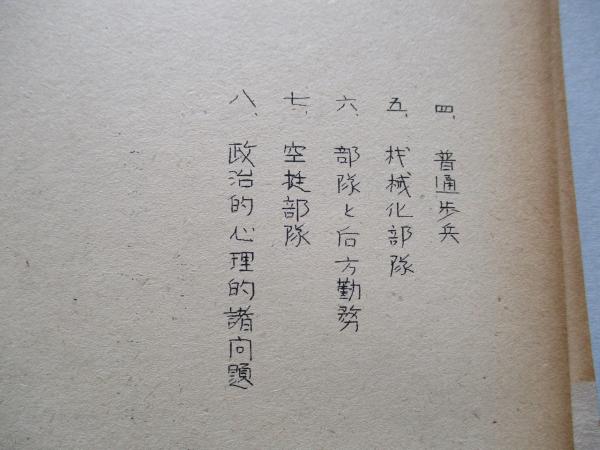 四、普通歩兵
五、機械化部隊
六、部隊と后方勤務
七、空挺部隊
八、政治的心理的諸問題